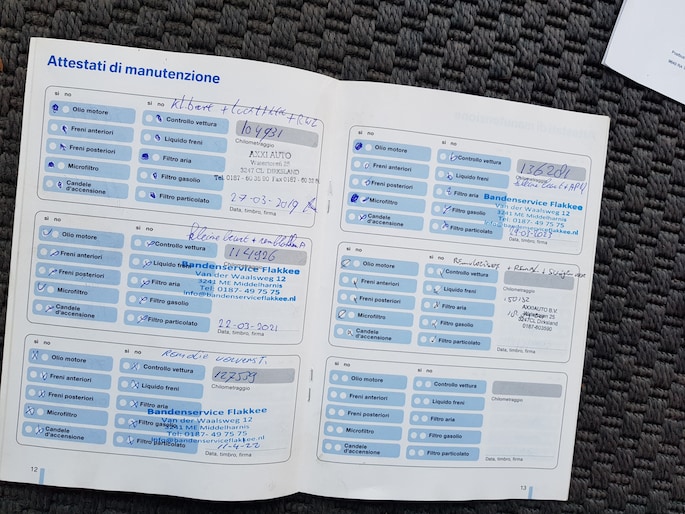 Attestati di manutenzione
si no
Olio motore
Freni anteriori
Freni posteriori
Microfiltro
Candele
d'accensione
si no
Controllo vettura
Liquido freni
Filtro aria
Filtro gasolio
Filtro particolato
104931
Chilometraggio
AXXI AUTO
3247 CL DIRKSLAND
27-03-2019
Data, timbro, firma
si no
Olio motore
Freni anteriori
Freni posteriori
Microfiltro
Candele
d'accensione
si no
kleine beurt +
Controllo vettura
Liquido freni
Filtro aria
Filtro gasolio
Filtro particolato
114926
Bandenservice Flakkee
Van der Waalsweg 12
3241 ME Middelharnis
Tel: 0187- 49 75 75
info@bandenserviceflakkee.nl
22-03-2021
Data, timbro, firma
si no
Olio motore
Freni anteriori
Freni posteriori
Microfiltro
Candele
d'accensione
si no
Controllo vettura
Liquido freni
Filtro aria
Filtro gasolio
Filtro particolato
127539
Chilometraggio
Bandenservice Flakkee
Van der Waalsweg 12
3241 ME Middelharnis
Tel: 0187- 49 75 75
info@bandenserviceflakkee.nl
11-4-22
Data, timbro, firma
12
si no
Olio motore
Freni anteriori
Freni posteriori
Microfiltro
Candele
d'accensione
si no
Controllo vettura
Liquido freni
Filtro aria
Filtro gasolio
Filtro particolato
136281
Bandenservice Flakkee
Van der Waalsweg 12
3241 ME Middelharnis
Tel: 0187- 49 75 75
Data, timbro, firma
si no
Olio motore
Freni anteriori
Freni posteriori
Microfiltro
Candele
d'accensione
si no
Controllo vettura
Liquido freni
Filtro aria
Filtro gasolio
Filtro particolato
Chilometraggio
150132
AXXIAUTO B.V.
3247CL Dirksland
0187-603590
Data, timbro, firma
si no
Olio motore
Freni anteriori
Freni posteriori
Microfiltro
Candele
d'accensione
si no
Controllo vettura
Liquido freni
Filtro aria
Filtro gasolio
Filtro particolato
Chilometraggio
Data, timbro, firma
13